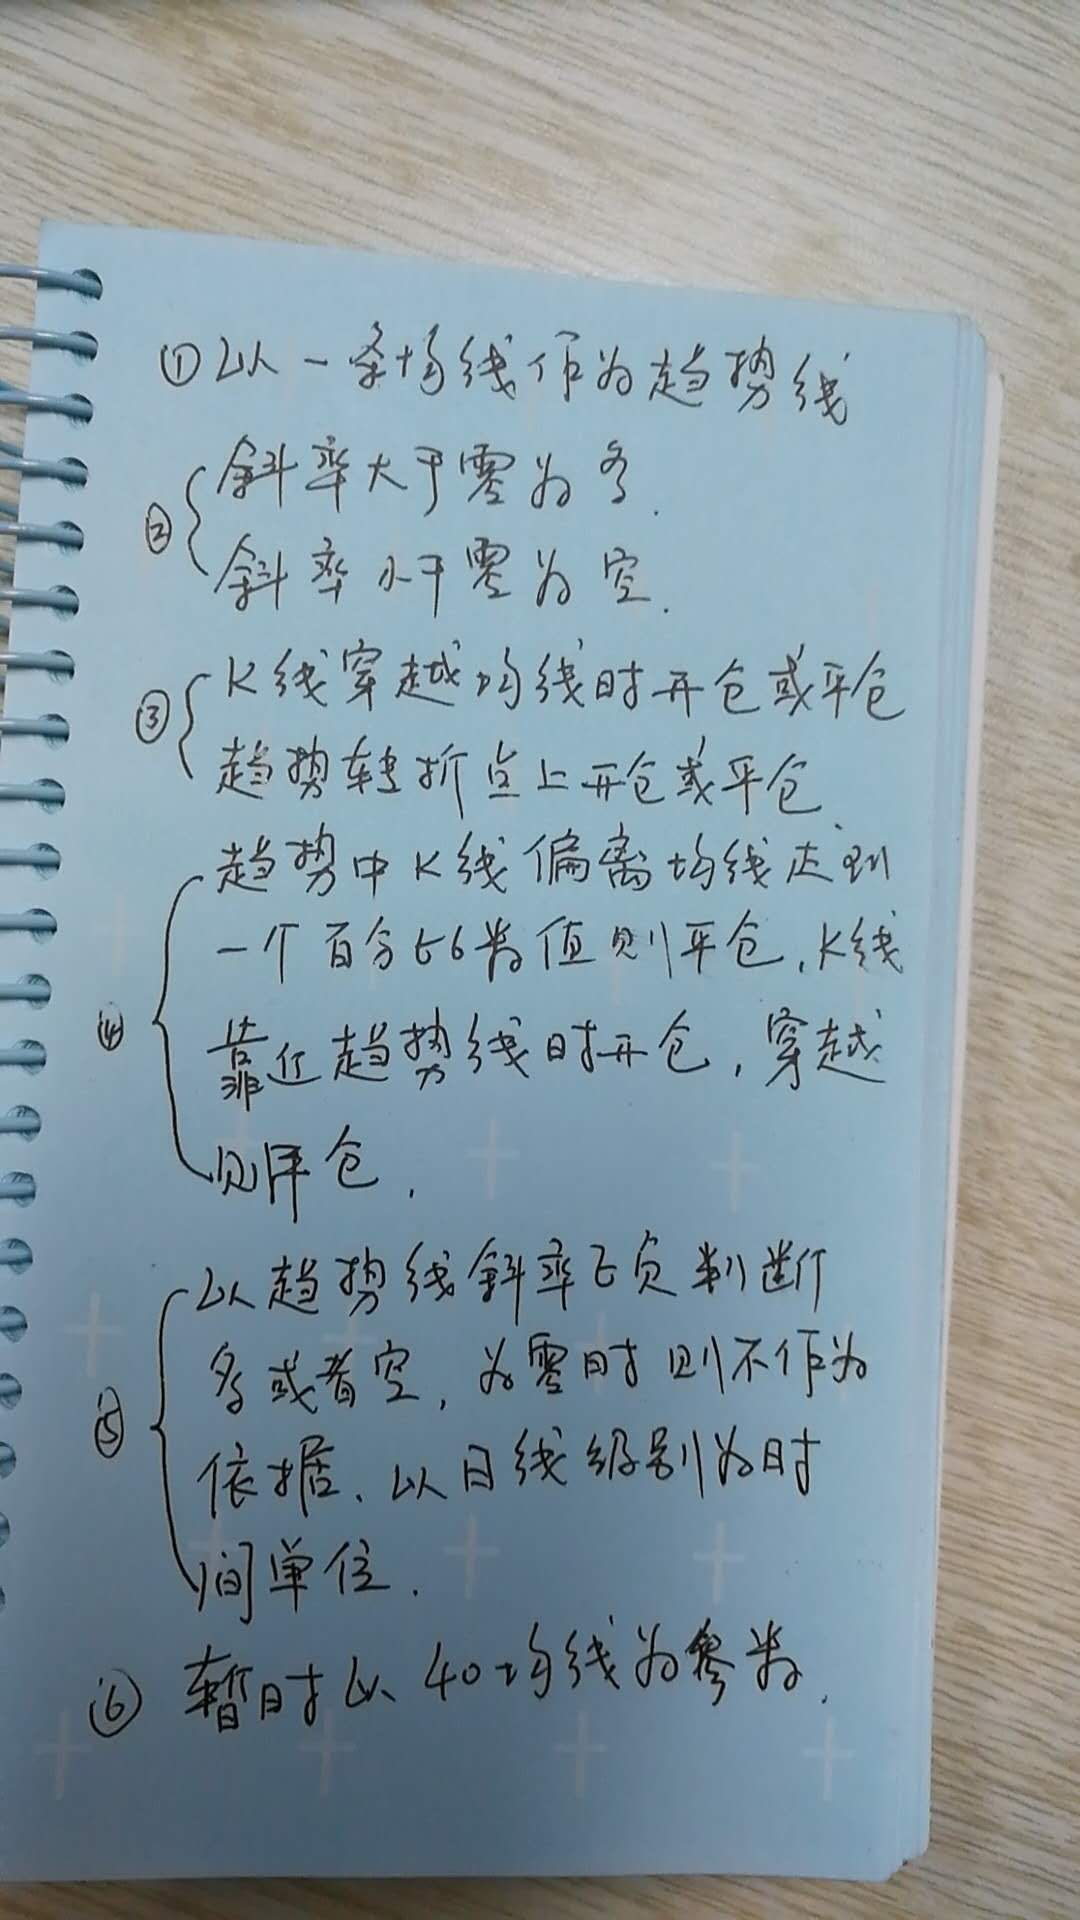 ①以一条均线作为趋势线
②斜率大于零为多.
斜率小于零为空.
③K线穿越均线时开仓或平仓
趋势转折点上开仓或平仓
④趋势中K线偏离均线达到
一个百分比数值则平仓,K线
靠近趋势线时开仓,穿越
则平仓.
⑤以趋势线斜率正负判断
多或者空,为零时则不作为
依据.以日线级别为时
间单位.
⑥暂时以40均线为参数.